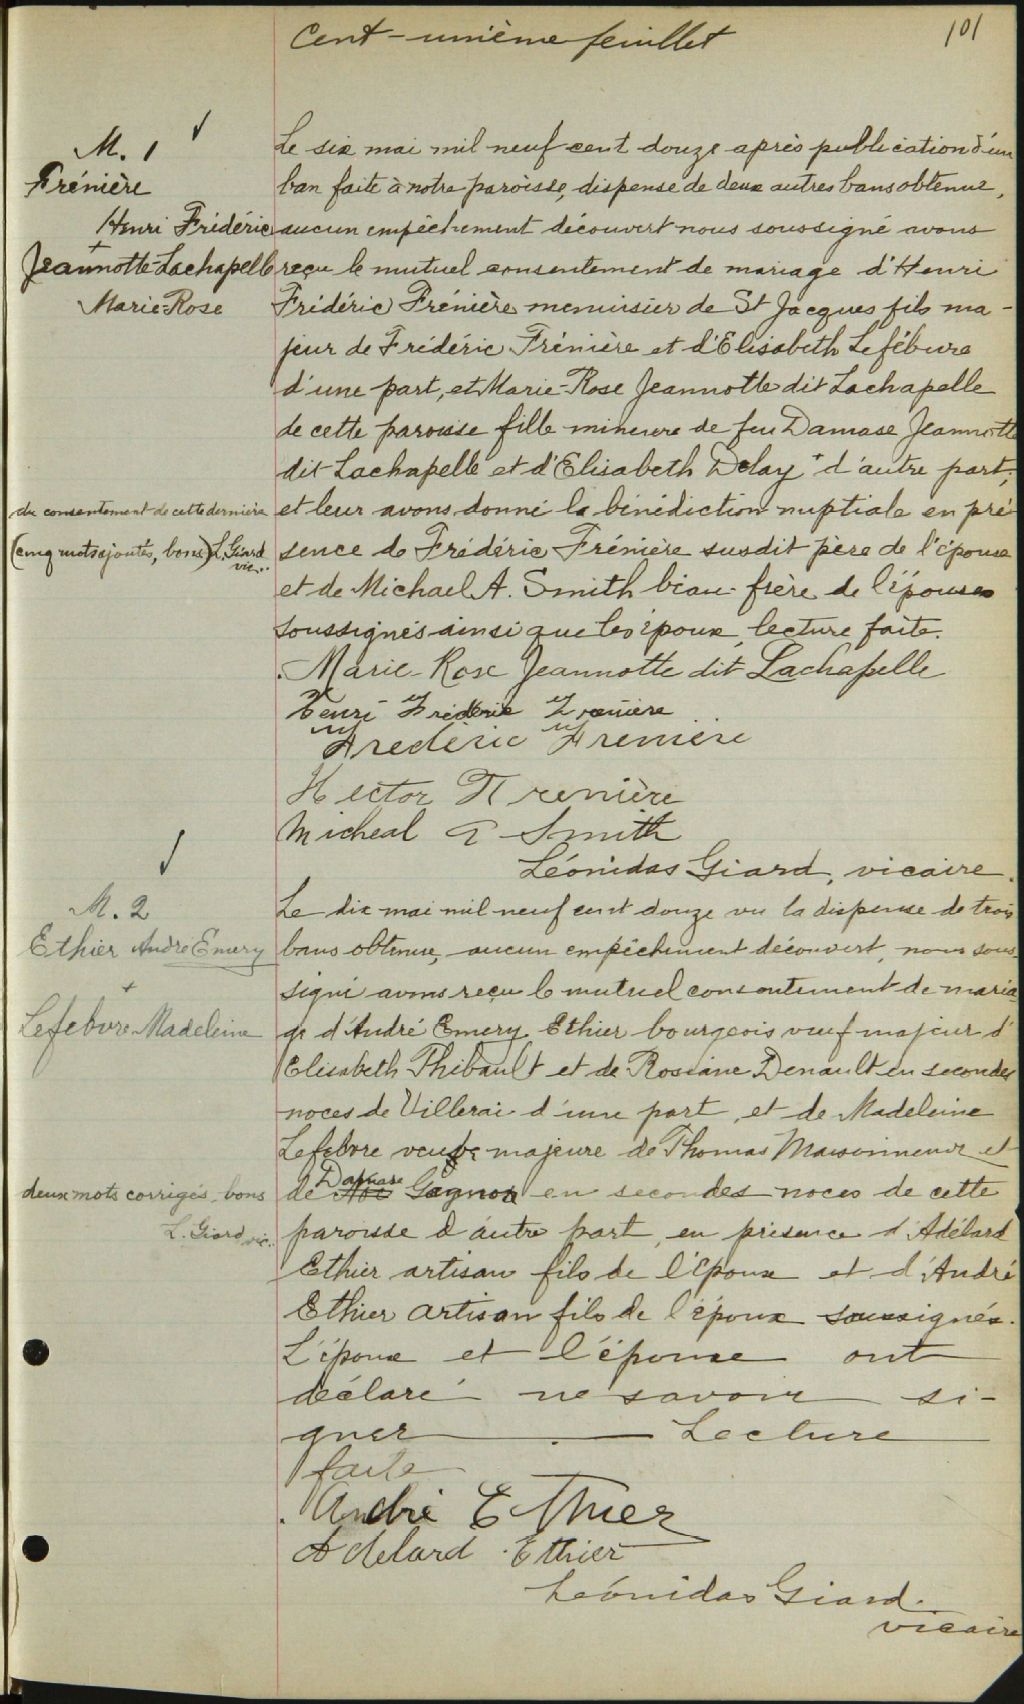 Cent-unième feuillet
101
M. 1
Frénière
Henri Frédéric
+
Jeannotte-Lachapelle
Marie-Rose
Le six mai mil neuf cent douze après publication d'un
ban faite à notre paroisse, dispense de deux autres bans obtenue,
aucun empêchement découvert nous soussigné avons
reçu le mutuel consentement de mariage d'Henri
Frédéric Frénière menuisier de St Jacques fils ma-
jeur de Frédéric Frénière et d'Elisabeth Lefébvre
d'une part, et Marie-Rose Jeannotte dit Lachapelle
de cette paroisse fille mineure de feu Damase Jeannotte
dit Lachapelle et d'Elisabeth Delay + d'autre part;
du consentement de cette dernière
(cinq mots ajoutés, bons) L. Giard
vic..
et leur avons donné la bénédiction nuptiale en pré-
sence de Frédéric Frénière susdit père de l'époux
et de Michael A. Smith beau-frère de l'épouse
soussignés ainsi que les époux, lecture faite.
Marie-Rose Jeannotte dit Lachapelle
Henri Frédéric Frénière
Frédéric Frenière
Hector Frenière
Micheal A Smith
Léonidas Giard, vicaire.
M. 2
Ethier André Emery
+
Lefebvre Madeleine
Le dix mai mil neuf cent douze vu la dispense de trois
bans obtenue, aucun empêchement découvert, nous sous-
signé avons reçu le mutuel consentement de maria-
ge d'André Emery Ethier bourgeois veuf majeur d'
Elisabeth Thibault et de Rosiane Denault en secondes
noces de Villerai d'une part, et de Madeleine
Lefebvre veuve majeure de Thomas Maisonneuve et
de Damase Gagnon en secondes noces de cette
deux mots corrigés, bons
L. Giard vic..
paroisse d'autre part, en présence d'Adélard
Ethier artisan fils de l'époux et d'André
Ethier artisan fils de l'époux soussignés.
L'époux et l'épouse ont
déclaré ne savoir si-
gner. — Lecture
faite
André Ethier
Adelard Ethier
Léonidas Giard.
vicaire